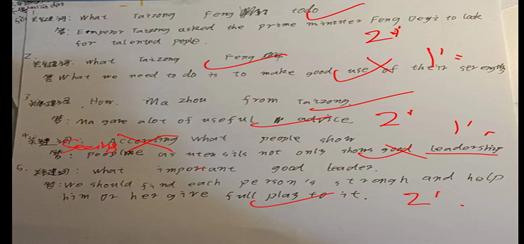 关键词: What Taizong Feng todo
答: Emperor Tarzong asked the prime minister Feng Deyi to look
for talented people.
2'
2.
关键词: What Taizong Feng
答 What we need to do is to make good use of their strength
1'
3.
关键词. How. Ma zhou from Taizong.
答: Ma gave alot of useful advice.
2'
4.
关键词: According What people show
Seeing
答: people as utensils not only shows good leadership
1'
5.
关键词: What important good leader.
答: We should find each person's strength and help
him or her give full play to it.
2'